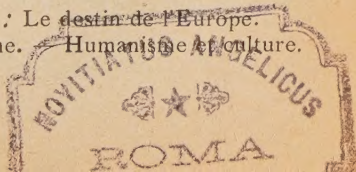 : Le destin de l'Europe.
ne. — Humanisme et culture.
NOVITIATUS ANGELICUS
ROMA